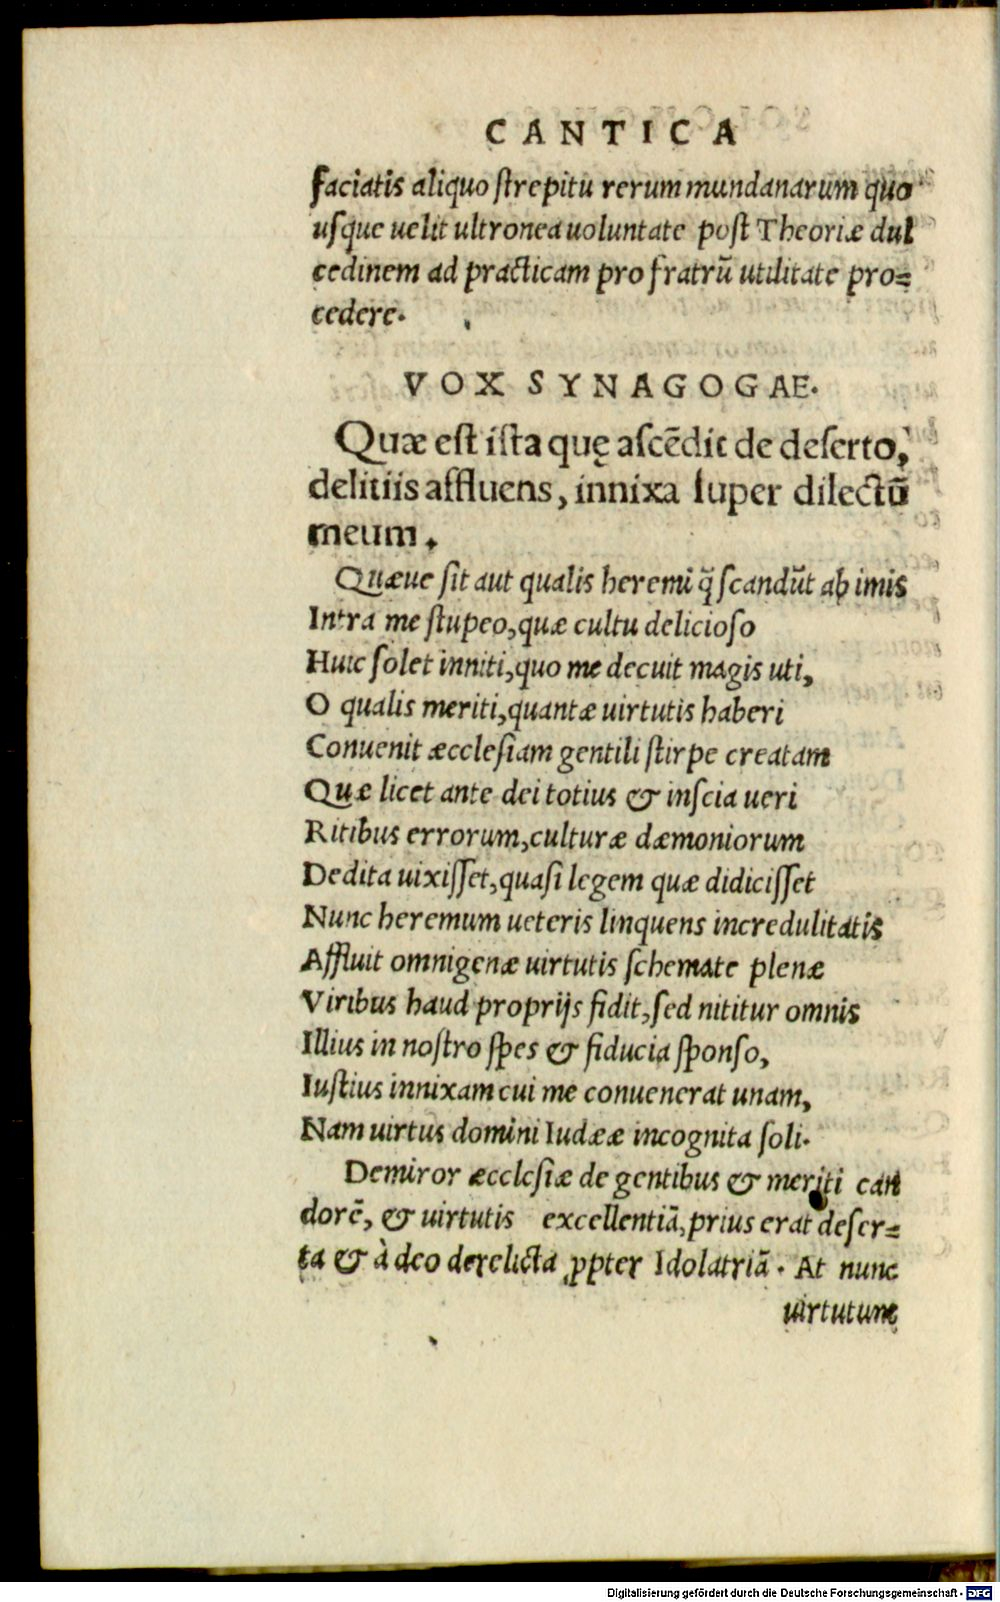 CANTICA
faciatis aliquo ſtrepitu rerum mundanarum quo
uſque uelit ultronea uoluntate poſt Theoriæ dul
cedinem ad practicam pro fratrū utilitate pro=
cedere.
VOX SYNAGOGAE.
Quæ eſt iſta quę aſcēdit de deſerto,
delitiis affluens, innixa ſuper dilectū
meum.
Quæue ſit aut qualis heremi q̃ ſcandūt ab imis
Intra me ſtupeo, quæ cultu delicioſo
Huic ſolet inniti, quo me decuit magis uti,
O qualis meriti, quantæ uirtutis haberi
Conuenit æccleſiam gentili ſtirpe creatam
Quæ licet ante dei totius & inſcia ueri
Ritibus errorum, culturæ dæmoniorum
Dedita uixiſſet, quaſi legem quæ didiciſſet
Nunc heremum ueteris linquens incredulitatis
Affluit omnigenæ uirtutis ſchemate plenæ
Viribus haud proprijs fidit, ſed nititur omnis
Illius in noſtro ſpes & fiducia ſponſo,
Iuſtius innixam cui me conuenerat unam,
Nam uirtus domini Iudææ incognita ſoli.
Demiror æccleſiæ de gentibus & meriti can
dorē, & uirtutis excellentiā, prius erat deſer=
ta & à deo derelicta ꝓpter Idolatriā. At nunc
uirtutum
Digitalisierung gefördert durch die Deutsche Forschungsgemeinschaft - DFG